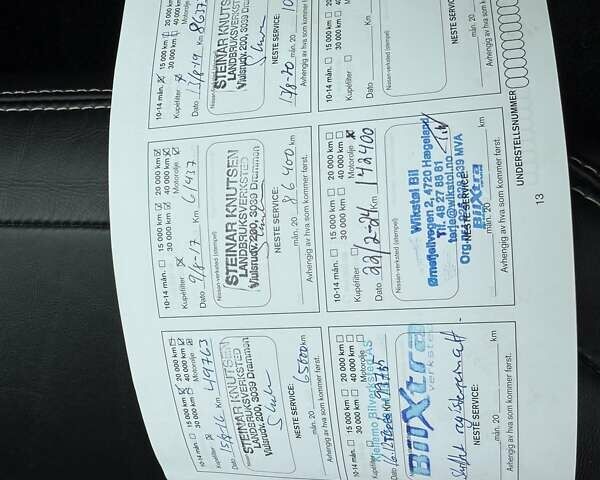 10-14 mån. ☐ 15 000 km ☒ 20 000 km ☑
30 000 km ☐ 40 000 km ☑
Kupéfilter ☒ Motorolje ☑
Dato Km 49763
Nissan-verksted (stempel)
STEINAR KNUTSEN
LANDBRUKSVERKSTED
Viulsrudv. 200, 3039 Drammen
NESTE SERVICE:
mån. 20 65000 km
Avhengig av hva som kommer først.
10-14 mån. ☐ 15 000 km ☐ 20 000 km ☑
30 000 km ☐ 40 000 km ☑
Kupéfilter ☒ Motorolje ☑
Dato 9/8-17 Km 61437
Nissan-verksted (stempel)
STEINAR KNUTSEN
LANDBRUKSVERKSTED
Viulsrudv. 200, 3039 Drammen
NESTE SERVICE:
mån. 20 86400 km
Avhengig av hva som kommer først.
10-14 mån. ☒ 15 000 km ☐ 20 000 km
30 000 km ☒ 40 000 km
Kupéfilter ☒ Motorolje
Dato 13/8-19 Km 8637
Nissan-verksted (stempel)
STEINAR KNUTSEN
LANDBRUKSVERKSTED
Viulsrudv. 200, 3039 Drammen
NESTE SERVICE:
13/8-20 mån. 20 10
Avhengig av hva som kommer
10-14 mån. ☐ 15 000 km ☐ 20 000 km ☐
30 000 km ☐ 40 000 km ☐
Kupéfilter Motorolje ☐
Bilverksted AS
Dato Km
BilXtra
verksted
NESTE SERVICE:
mån. 20 km
Avhengig av hva som kommer først.
10-14 mån. ☐ 15 000 km ☐ 20 000 km ☐
30 000 km ☐ 40 000 km ☐
Kupéfilter ☐ Motorolje ☒
Dato 22/2-24 Km 142400
Nissan-verksted (stempel)
Wikstøl Bil
4720 Hægeland
Tlf. 48 27 89 81
terje@wikstol.no
NESTE SERVICE:
BilXtra
mån. 20 km
Avhengig av hva som kommer først.
10-14 mån. ☐ 15 000 km ☐ 20 000 km
30 000 km ☐ 40 000 km
Kupéfilter ☐
Dato Km
Nissan-verksted (stempel)
NESTE SERVICE:
mån. 20
Avhengig av hva som kommer
UNDERSTELLSNUMMER
13